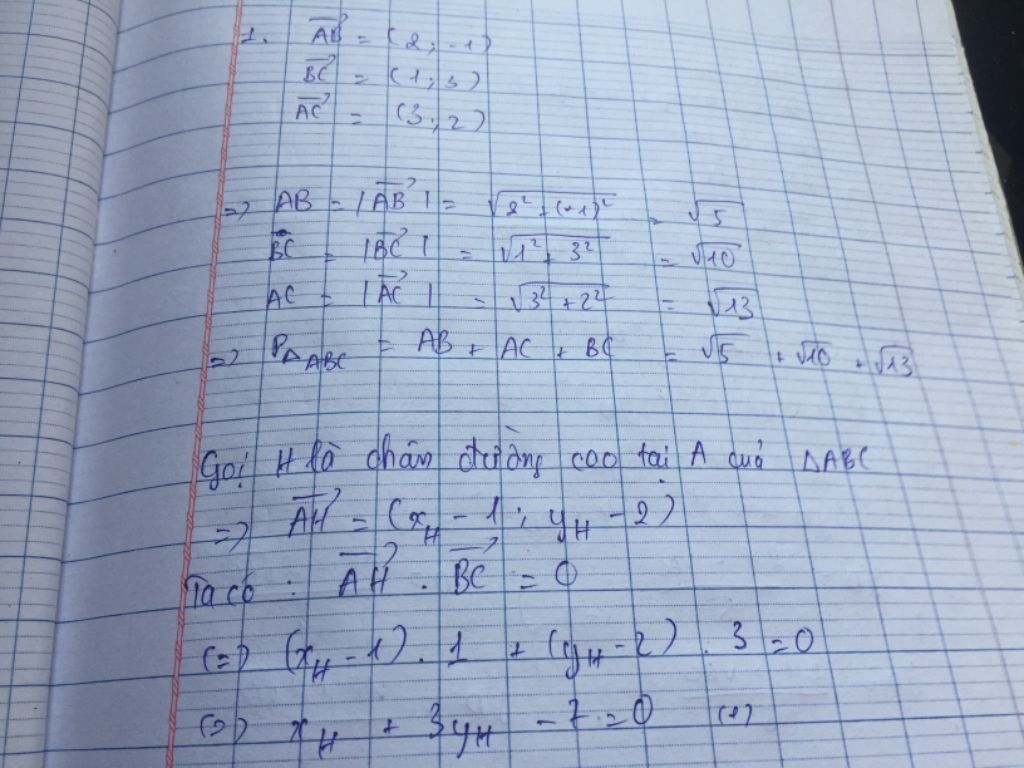 1. AB→ = (2; -1)
BC→ = (1; 3)
AC→ = (3; 2)
=> AB = |AB→| = √(2² + (-1)²) = √5
BC = |BC→| = √(1² + 3²) = √10
AC = |AC→| = √(3² + 2²) = √13
=> P△ABC = AB + AC + BC = √5 + √10 + √13
Gọi H là chân đường cao tại A của △ABC
=> AH→ = (x_H - 1; y_H - 2)
Ta có : AH→ . BC→ = 0
(=) (x_H - 1) . 1 + (y_H - 2) . 3 = 0
(=) x_H + 3y_H - 7 = 0 (1)